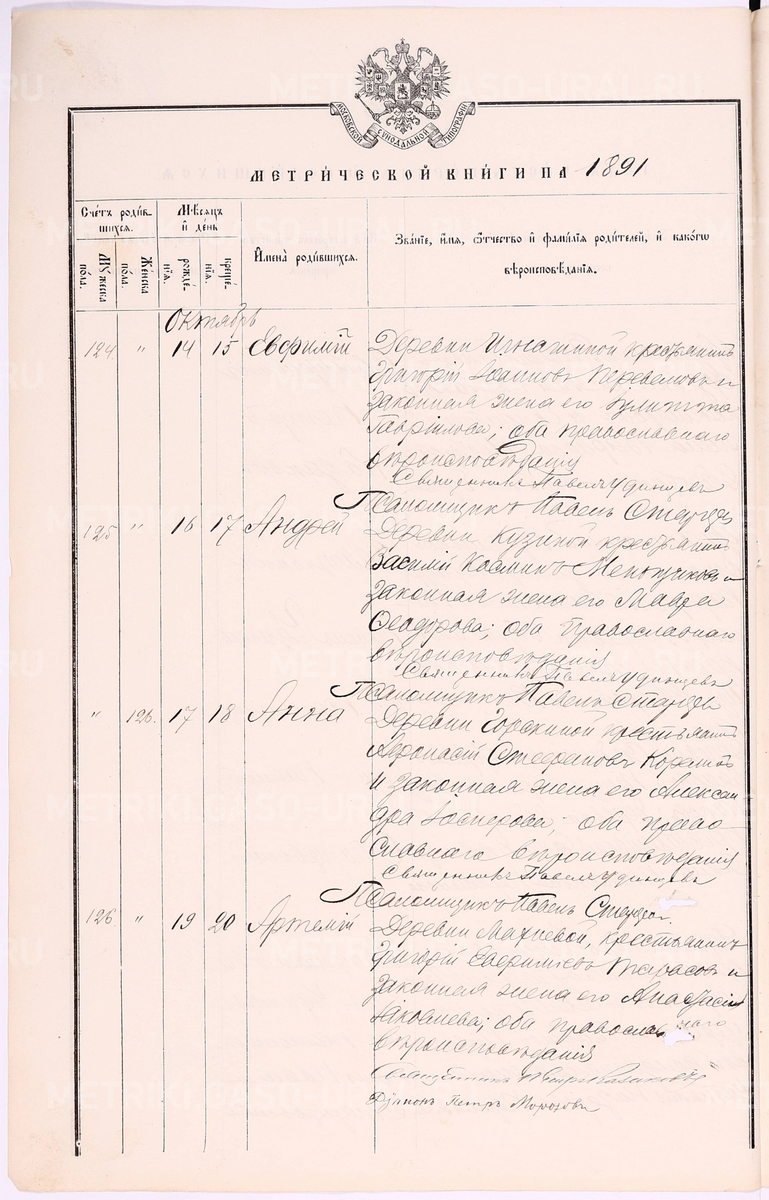 МОСКОВСКОЙ СѴНОДАЛЬНОЙ ТИПОГРАФІИ
МЕТРИ́ЧЕСКОЙ КНИ́ГИ НА 1891
Сче́тъ роди́вшихся.
Мѣ́сяцъ и҆ де́нь
И҆мена̀ роди́вшихся.
Зва́нїе, и҆́мя, ѻ҆́тчество и҆ фами́лїя роди́телей, и҆ како́гѡ вѣроисповѣ́данїя.
Му́жеска по́ла.
Же́нска по́ла.
рожде́нїя.
креще́нїя.
Октябрь
124 " 14 15 Евфимій Деревни Игнатиной крестьянинъ
Григорій Іоанновъ и
законная жена его Іулитта
Гаврілова; оба православнаго
вѣроисповѣданія
Священникъ Павелъ Удинцевъ
Псаломщикъ Павелъ
125 " 16 17 Андрей Деревни Кузиной крестьянинъ
Василій Козминъ Меньшиковъ и
законная жена его Мавра
Ѳеодорова; оба Православнаго
вѣроисповѣданія
Священникъ Павелъ Удинцевъ
Псаломщикъ Павелъ
" 126. 17 18 Анна Деревни Горскиной крестьянинъ
Афонасій Стефановъ
и законная жена его Алексан
дра Іосифова; оба право
славнаго вѣроисповѣданія
Священникъ Павелъ Удинцевъ
Псаломщикъ Павелъ
126 " 19 20 Артемій Деревни Махневой, крестьянинъ
Григорій Евфиміевъ Тарасовъ и
законная жена его Анастасія
Іаковлева; оба православнаго
вѣроисповѣданія
Священникъ
Діаконъ Петръ Морозовъ